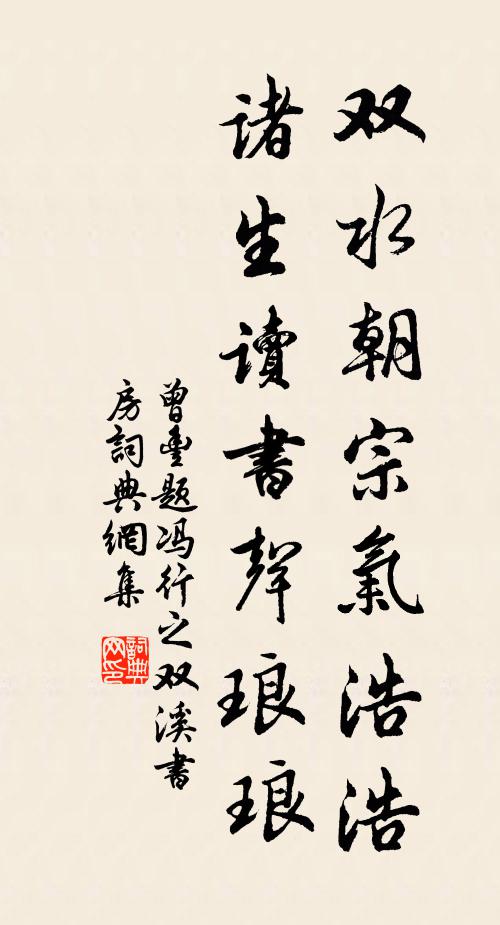 双水朝宗氣浩浩
諸生讀書聲琅琅
曾豊题冯行之双溪書
房詞典網集
詞典
网印